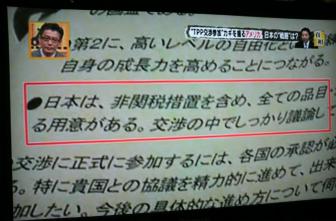 "TPP交渉参加"カギを握るアメリカ 日本の"戦略"は?
第2に、高いレベルの自由化という
自身の成長力を高めることにつながる。
●日本は、非関税措置を含め、全ての品目
る用意がある。交渉の中でしっかり議論し
交渉に正式に参加するには、各国の承認が必
る。特に貴国との協議を精力的に進めて、出来
加したい。今後の具体的な進め方について